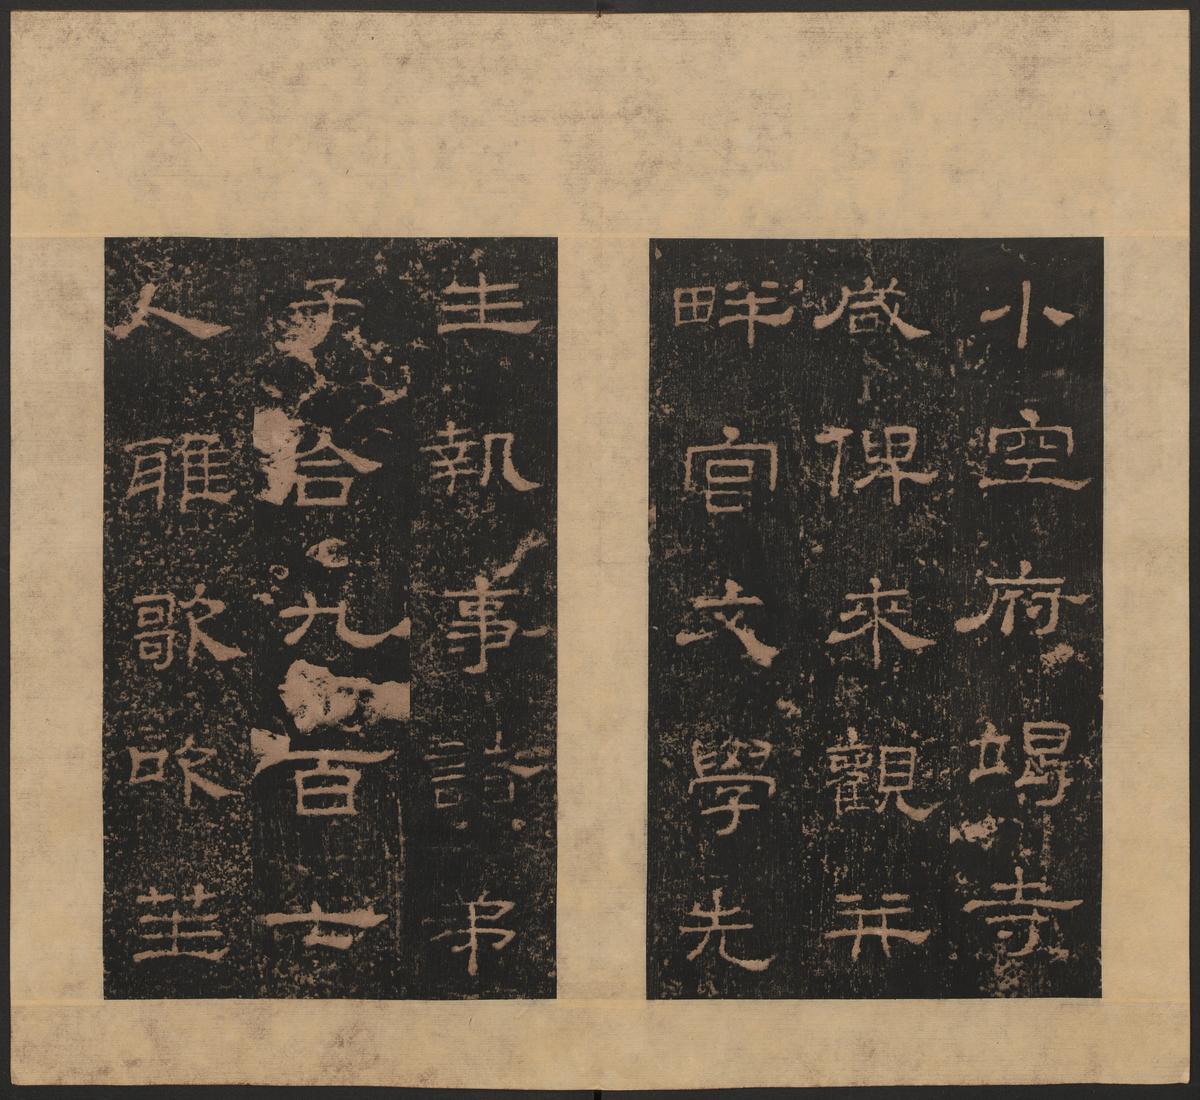 小空府竭寺
咸俾來觀并
畔官文學先
生執事諸弟
子合九百七
人雅歌吹笙